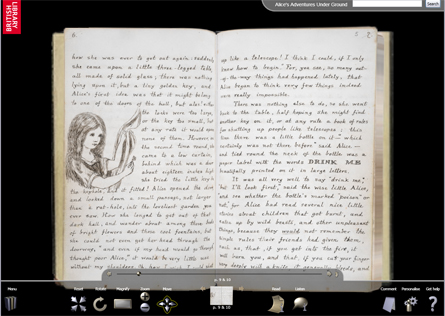 Alice's Adventures Under Ground
Search
BRITISH
LIBRARY
how she was ever to get out again: suddenly
she came upon a little three-legged table,
all made of solid glass; there was nothing
lying upon it, but a tiny golden key, and
Alice's first idea was that it might belong
to one of the doors of the hall, but alas! either
the locks were too large,
or the key too small, but
at any rate it would open
none of them. However, on
the second time round, she
came to a low curtain,
behind which was a door
about eighteen inches high:
she tried the little key in
the keyhole, and it fitted! Alice opened the door
and looked down a small passage, not larger
than a rat-hole, into the loveliest garden you
ever saw. How she longed to get out of that
dark hall, and wander about among those beds
of bright flowers and those cool fountains, but
she could not even get her head through the
doorway, "and even if my head would go through,"
thought poor Alice, "it would be very little use
without my shoulders.
up like a telescope! I think I could, if I only
knew how to begin." For, you see, so many out-
of-the-way things had happened lately, that
Alice began to think very few things indeed
were really impossible.
There was nothing else to do, so she went
back to the table, half hoping she might find
another key on it, or at any rate a book of rules
for shutting up people like telescopes: this
time there was a little bottle on it— "which
certainly was not there before" said Alice—
and tied round the neck of the bottle was a
paper label with the words DRINK ME
beautifully printed on it in large letters.
It was all very well to say "drink me,"
but I'll look first," said the wise little Alice,
and see whether the bottle's marked "poison" or
not," for Alice had read several nice little
stories about children that got burnt, and
eaten up by wild beasts, and other unpleasant
things, because they would not remember the
simple rules their friends had given them,
such as, that, if you get into the fire, it
will burn you, and that, if you cut your finger
very deeply with a knife, it generally bleeds, and
p. 9 & 10
Menu
Reset
Rotate
Magnify
Zoom
Move
p. 9 & 10
Read
Listen
Comment
Personalise
Get help